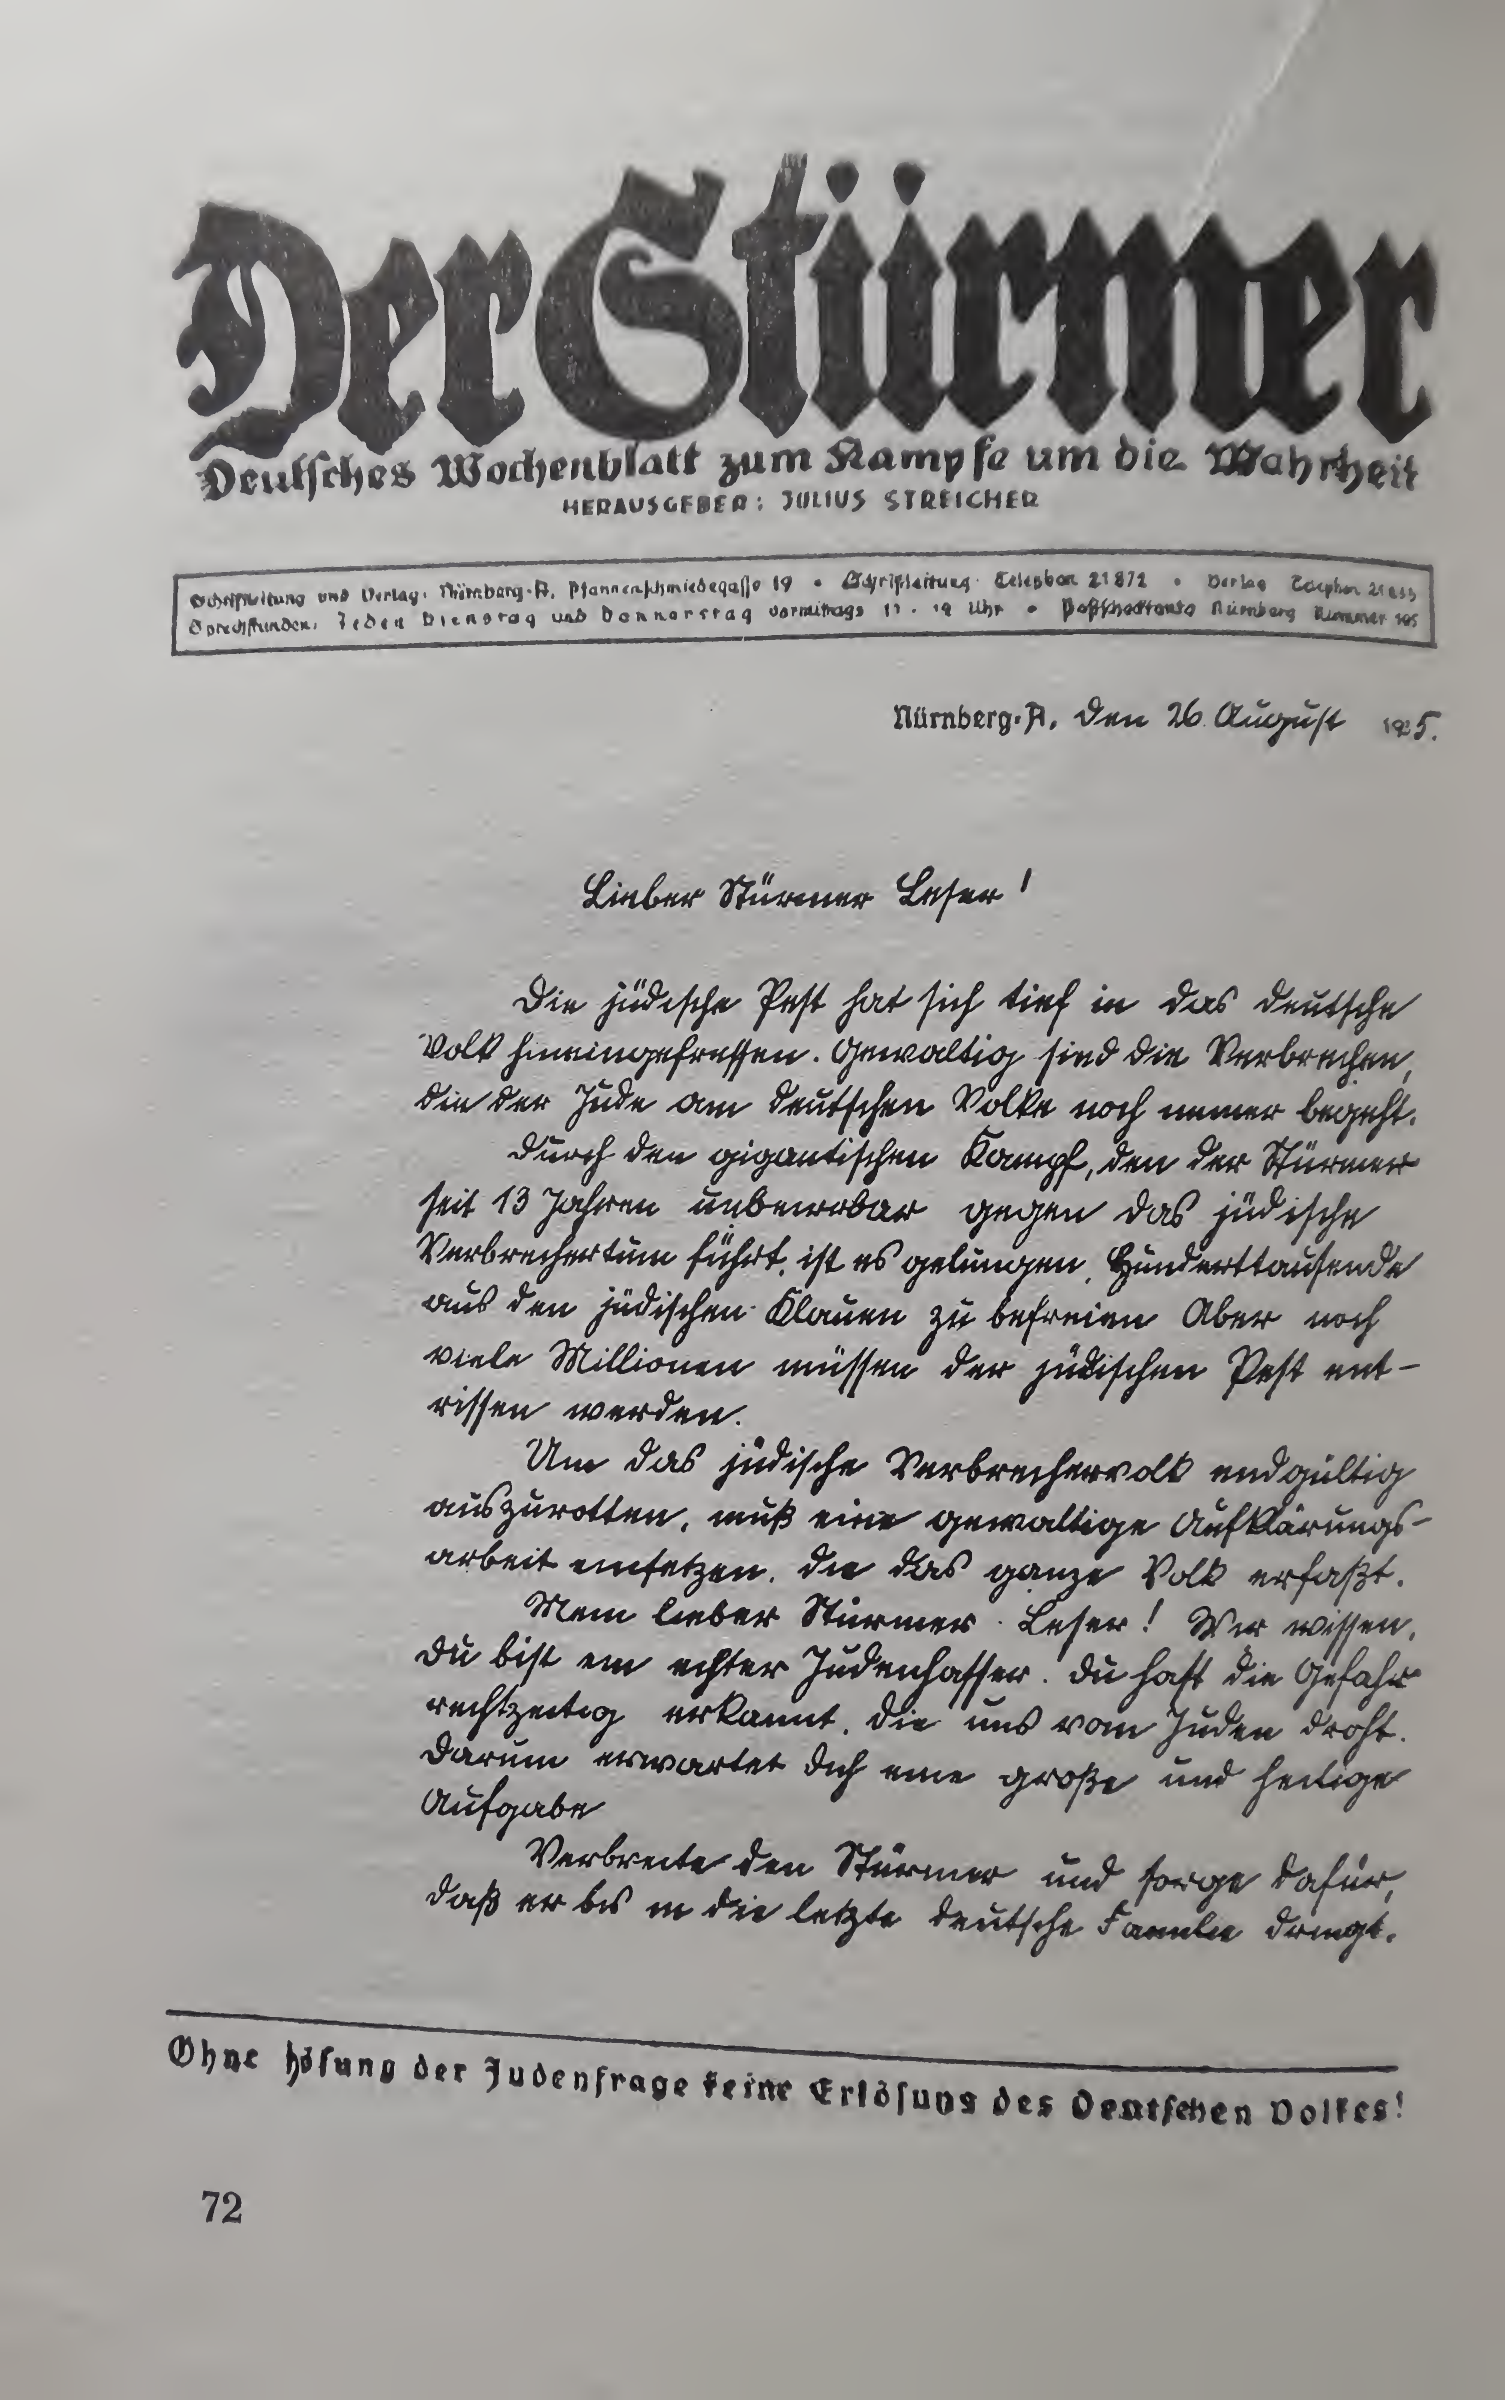 Der Stürmer
Deutsches Wochenblatt zum Kampfe um die Wahrheit
HERAUSGEBER: JULIUS STREICHER
Schriftleitung und Verlag: Nürnberg-A, Pfannenschmiedsgasse 19 • Schriftleitung Telephon 21872 • Verlag Telephon
Sprechstunden: Jeden Dienstag und Donnerstag vormittags • Postscheckkonto Nürnberg Nummer 105
Nürnberg-A, den 26. August 1935.
Lieber Stürmer Leser!
Die jüdische Pest hat sich tief in das deutsche
Volk hineingefressen. Gewaltig sind die Verbrechen,
die der Jude am deutschen Volke noch immer begeht.
Durch den gigantischen Kampf, den der Stürmer
seit 13 Jahren unbeirrbar gegen das jüdische
Verbrechertum führt, ist es gelungen, Hunderttausende
aus den jüdischen Klauen zu befreien Aber noch
viele Millionen müssen der jüdischen Pest ent-
rissen werden.
Um das jüdische Verbrechervolk endgültig
auszurotten, muß eine gewaltige Aufklärungs-
arbeit einsetzen, die das ganze Volk erfaßt.
Mein lieber Stürmer-Leser! Wir wissen,
Du bist ein echter Judenhasser. Du hast die Gefahr
rechtzeitig erkannt, die uns vom Juden droht.
Darum erwartet Dich eine große und heilige
Aufgabe
Verbreite den Stürmer und sorge dafür,
daß er bis in die letzte deutsche Familie dringt.
Ohne Lösung der Judenfrage keine Erlösung des Deutschen Volkes!
72